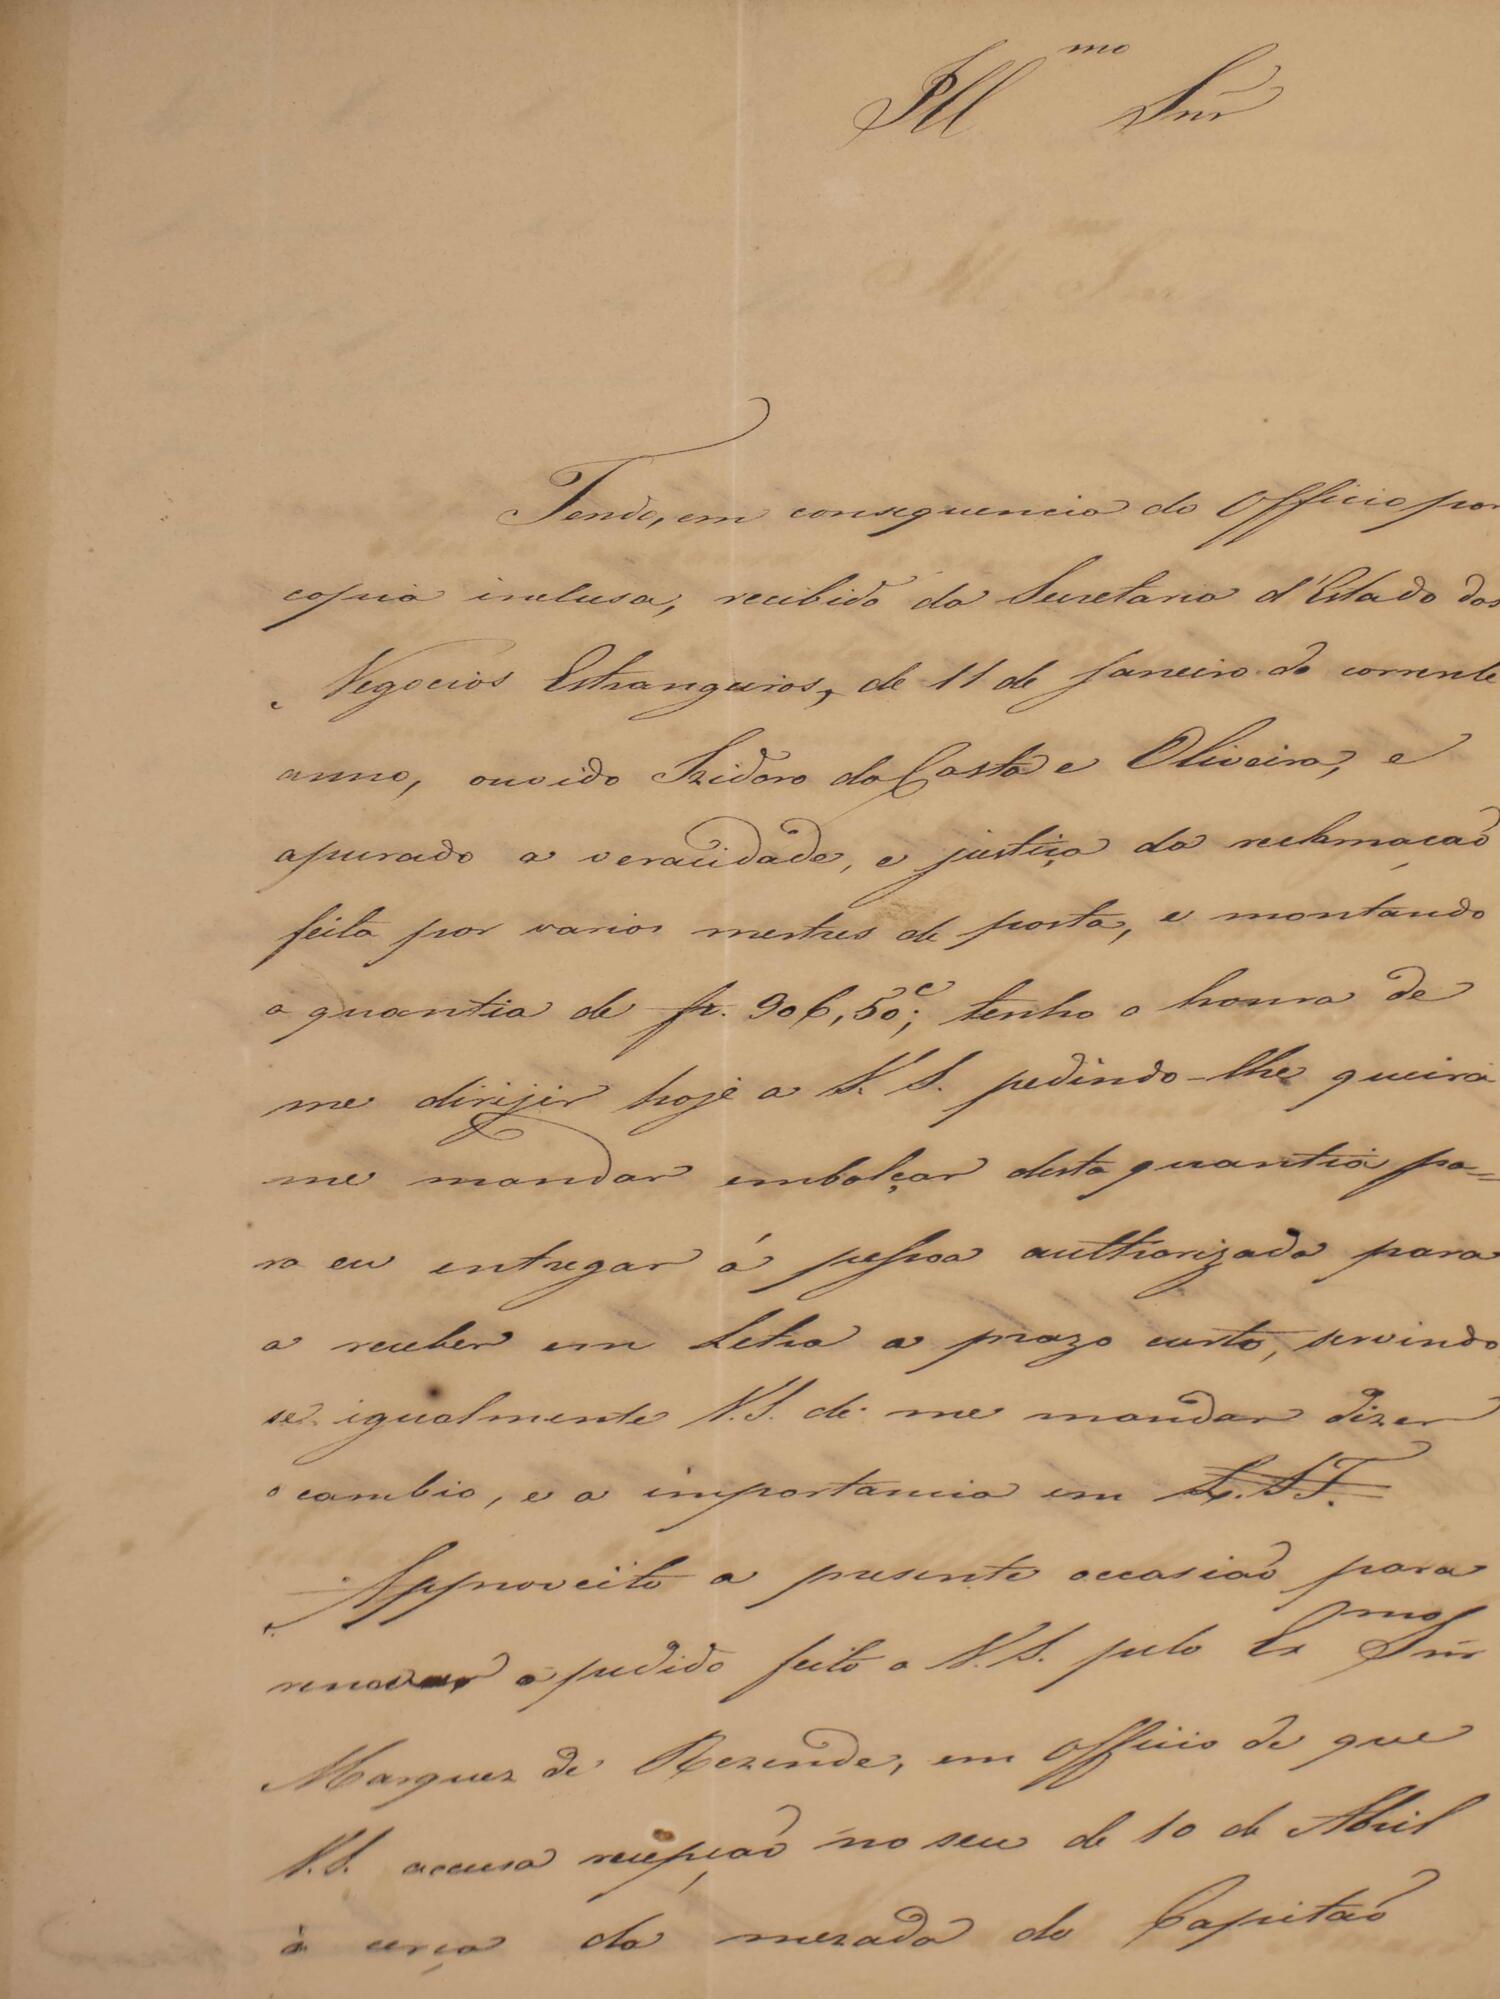 Ill mo Snr
Tendo, em consequencia do Officio por
copia inclusa, recibido da Secretaria d'Estado dos
Negocios Estrangeiros, de 11 de Janeiro do corrente
anno, ouvido Izidoro da Costa e Oliveira, e
apurado a veracidade, e justiça da reclamação
feita por varios mestres de posta, e montando
a quantia de fr. 906,50 c; tenho a honra de
me dirijir hoje a V. S. pedindo-lhe queira
me mandar embolçar desta quantia pa=
ra eu entregar á pessoa authorizada para
a receber em Letra a prazo curto, servindo
se igualmente V. S. de me mandar dizer
o cambio, e a importancia em L. ST.
Approveito a presente occasião para
renovar o pedido feito a V. S. pelo Ex mo Snr
Marquez de Rezende, em Officio de que
V. S. accusa recepção no seu de 10 de Abril
á cerca da mezada do Capitão